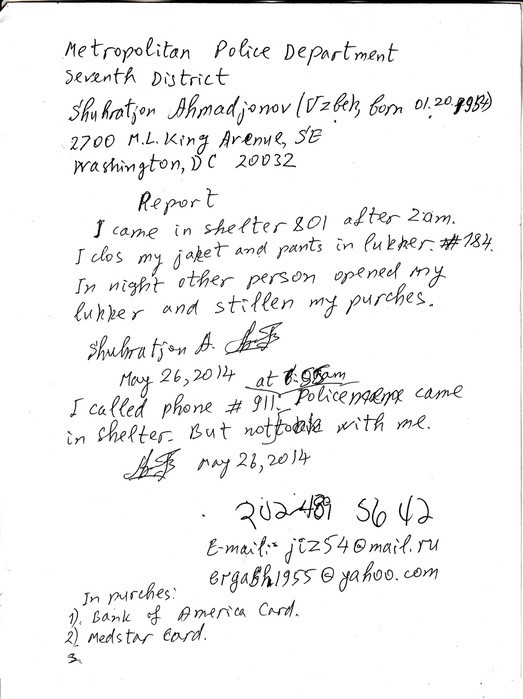 Metropolitan Police Department
Seventh District
Shuhratjon Ahmadjonov (Uzbek, born 01.20.1954)
2700 M.L. King Arenue, SE
Washington, DC 20032
Report
I came in shelter 801 after 2am.
I clos my jaket and pants in lukker. #184.
In night other person opened my
lukker and stillen my purches.
Shuhratjon A.
May 26, 2014 at am
I called phone # 911. Police came
in shelter. But not with me.
May 26, 2014
202 489 5642
E-mail:- jiz54@mail.ru
ergash1955@yahoo.com
In purches:
1). Bank of America Card.
2) Medstar Card.
3.